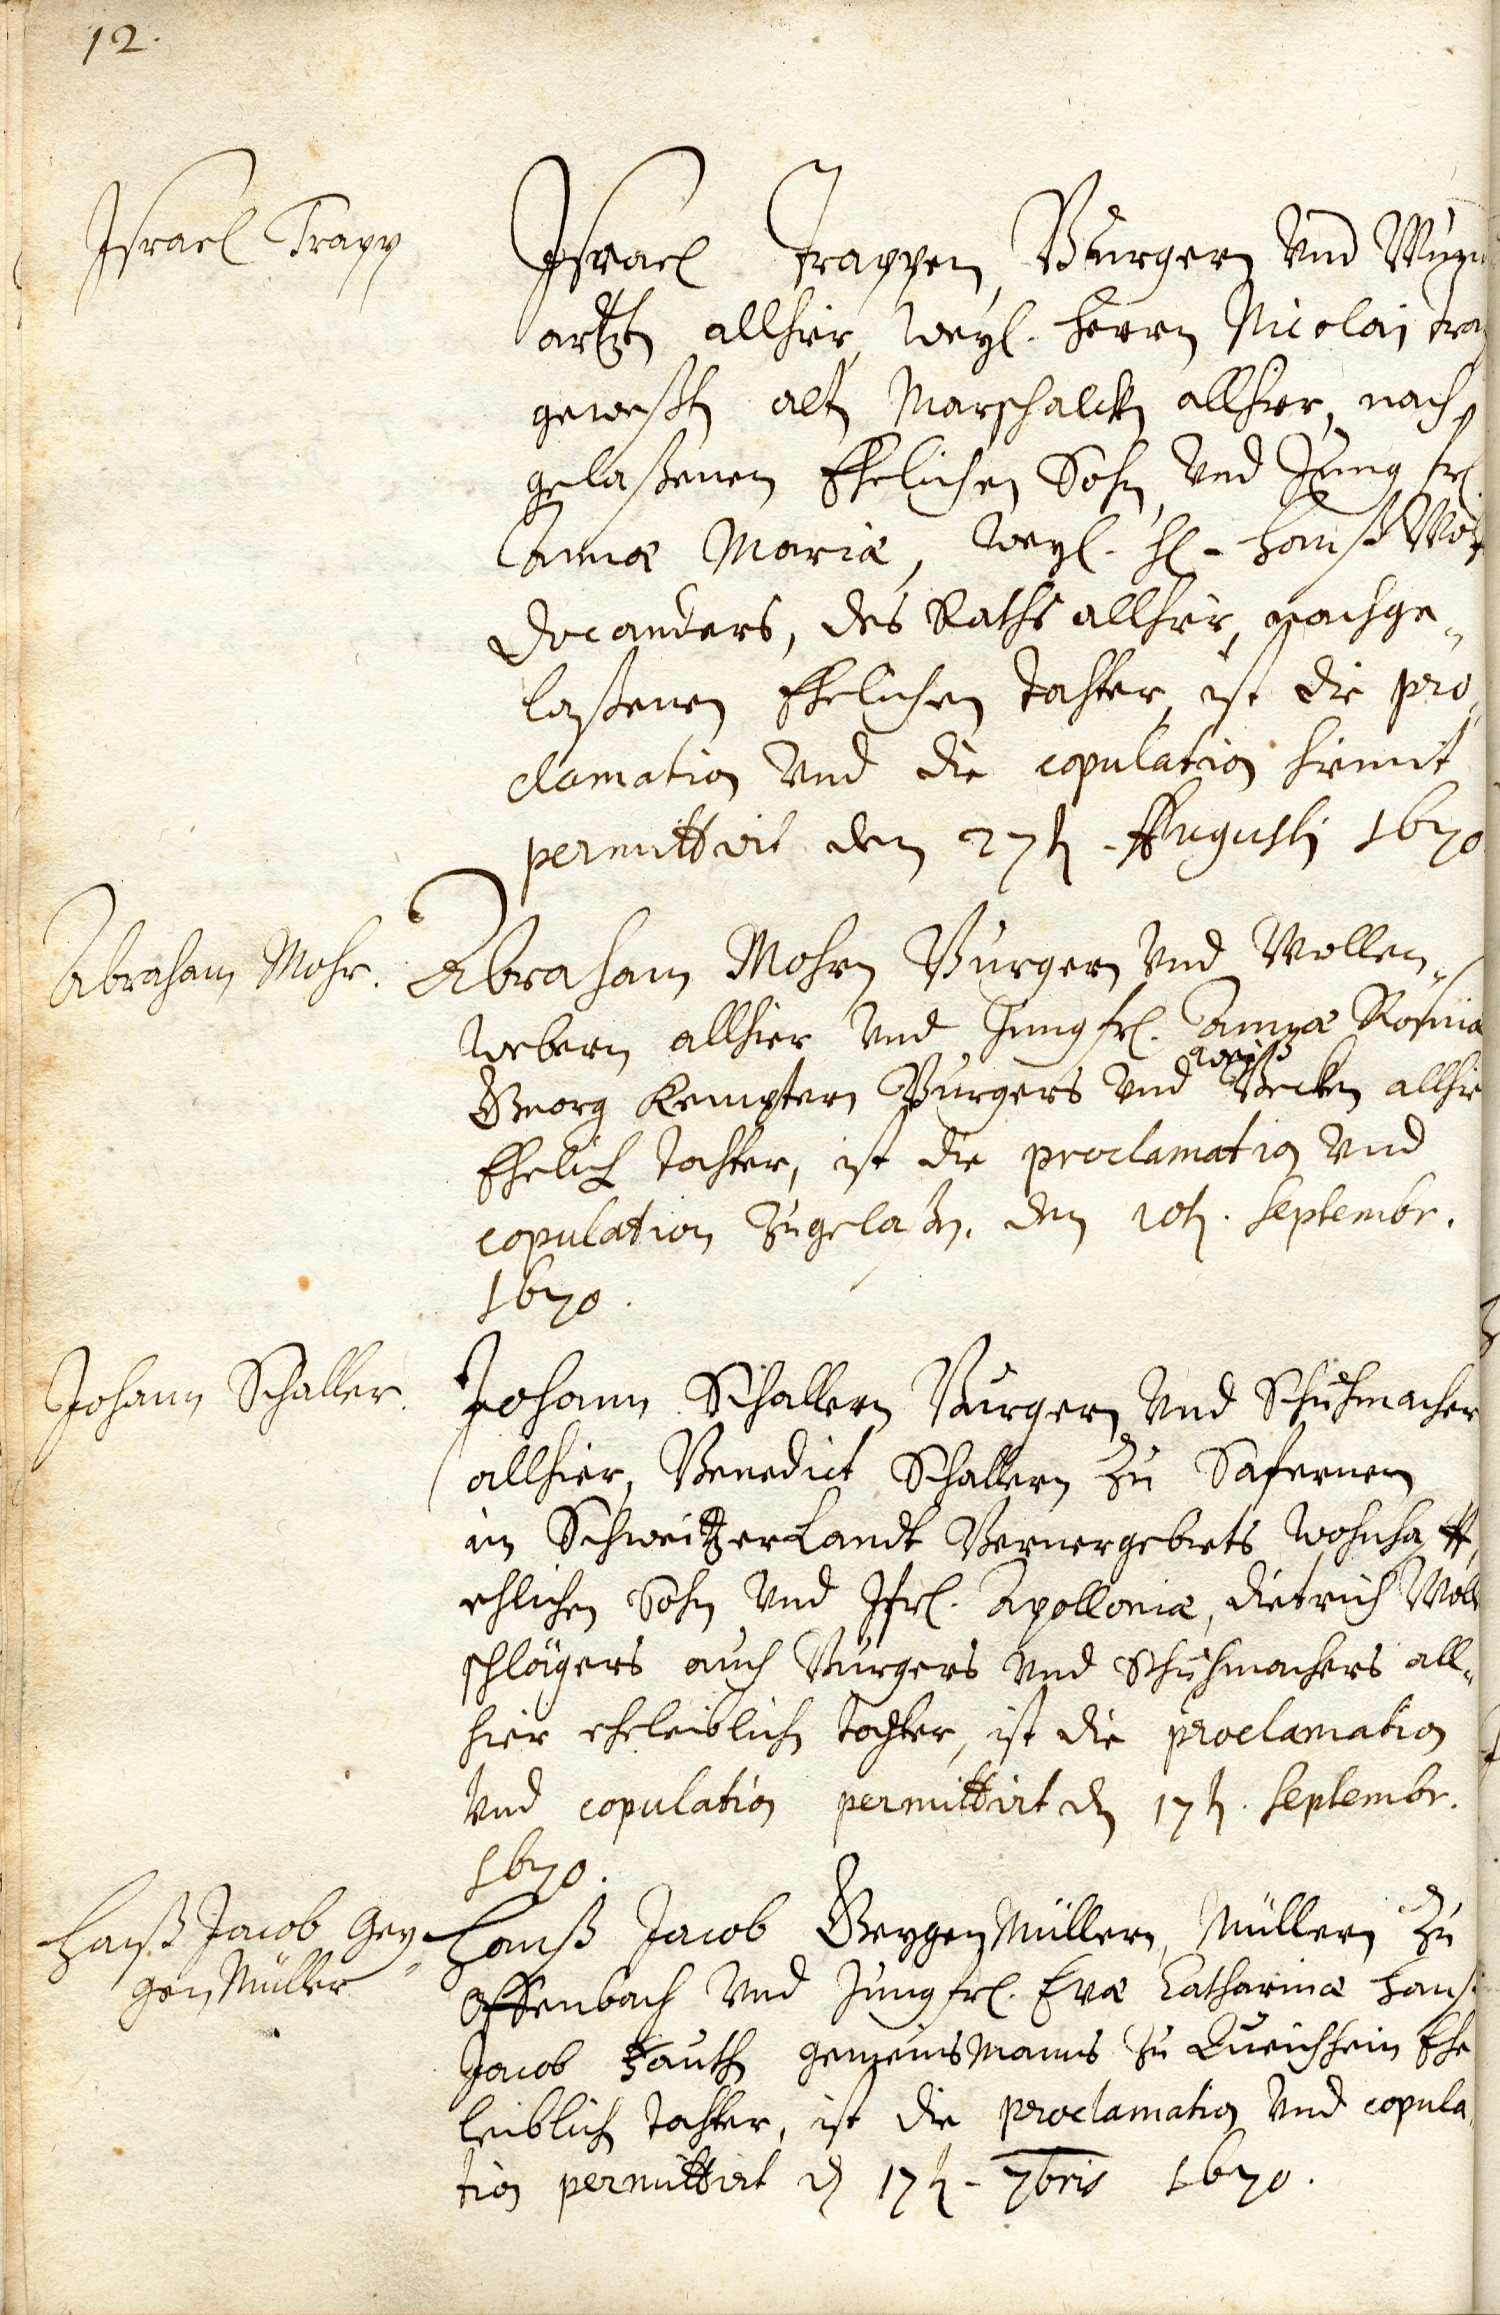 12.
Israel Trapp
Israel Trappen, Burgern Vnd Wund
artzten allhier, weyl. Herrn Nicolai Trap
geweßten alten Marschalcken allhier, nach„
gelaßenem Ehelichen Sohn, Vnd Jungfr.
Annæ Mariæ, weyl. H. Hanß
des Raths allhier, nachge„
laßenen Ehelichen tochter, ist die pro„
clamation Vnd die copulation hiemit
permittirt den 27ten Augusti 1670
Abraham Mohr.
Abraham Mohrn Burgern Vnd Wollen„
webern allhier Vnd Jungfr. Annæ Rosinæ
Georg Kemptern Burgers Vnd weiß Becken allhie
Ehelich tochter, ist die proclamation Vnd
copulation Zugelaßen. den 10ten. Septembr.
1670.
Johann Schaller.
Johann Schallern Burgern Vnd Schuhmacher
allhier, Benedict Schallern Zu Safernen
in SchweitzerLandt Bernergebiets wohnhafft,
ehlichen Sohn Vnd Jfr. Apolloniæ, Dietrich Woll
schlägers auch Burgers Vnd Schuhmachers all„
hier eheleiblichen tochter, ist die proclamation
Vnd copulation permittirt den 17ten. Septembr.
1670.
Hanß Jacob Gey„
genMüller
Hanß Jacob GeygenMüllern, Müllern Zu
Offenbach Vnd Jungfr. Evæ Catharinæ Hanß
Jacob Fauth gemeinsManns Zu Queichhein Ehe
leiblich tochter, ist die proclamation Vnd copula„
tion permittirt den 17ten 7bris 1670.